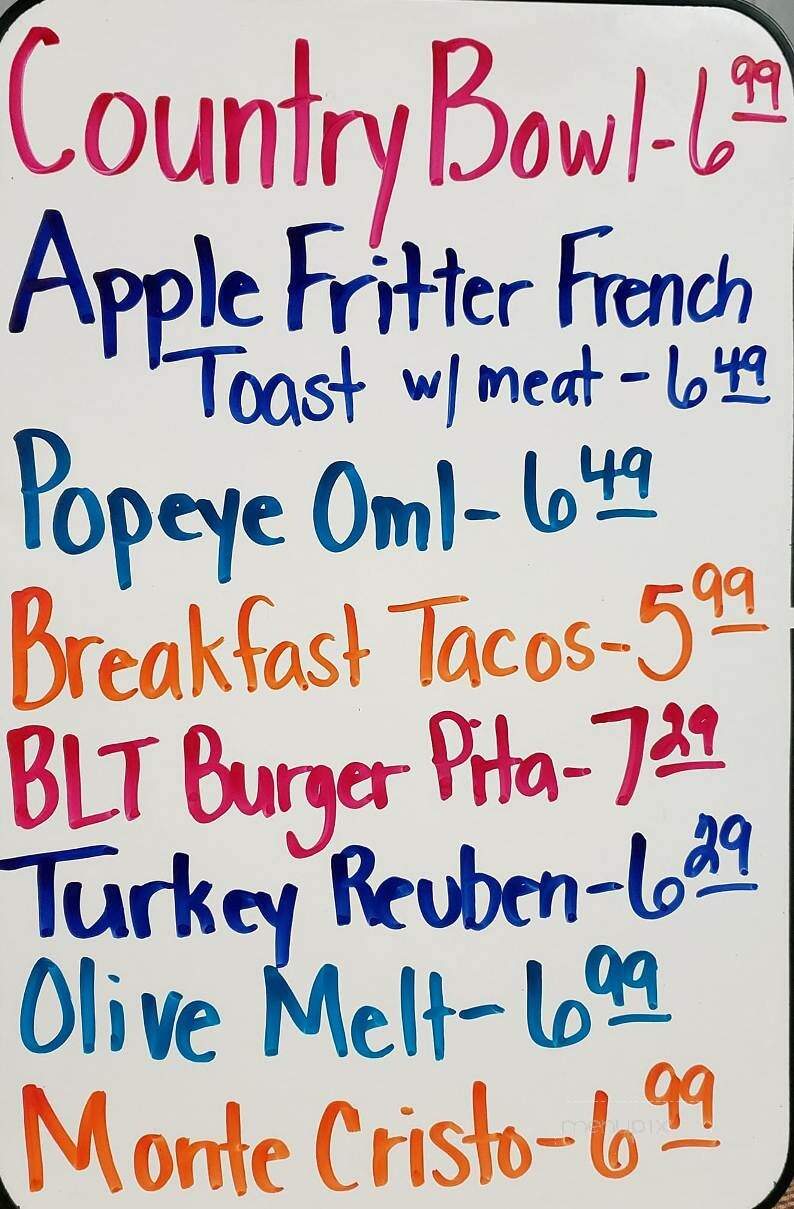 Country Bowl-6 99
Apple Fritter French
Toast w/ meat - 6 49
Popeye Oml- 6 49
Breakfast Tacos-5 99
BLT Burger Pita-7 29
Turkey Reuben-6 29
Olive Melt- 6 99
Monte Cristo-6 99
menupix